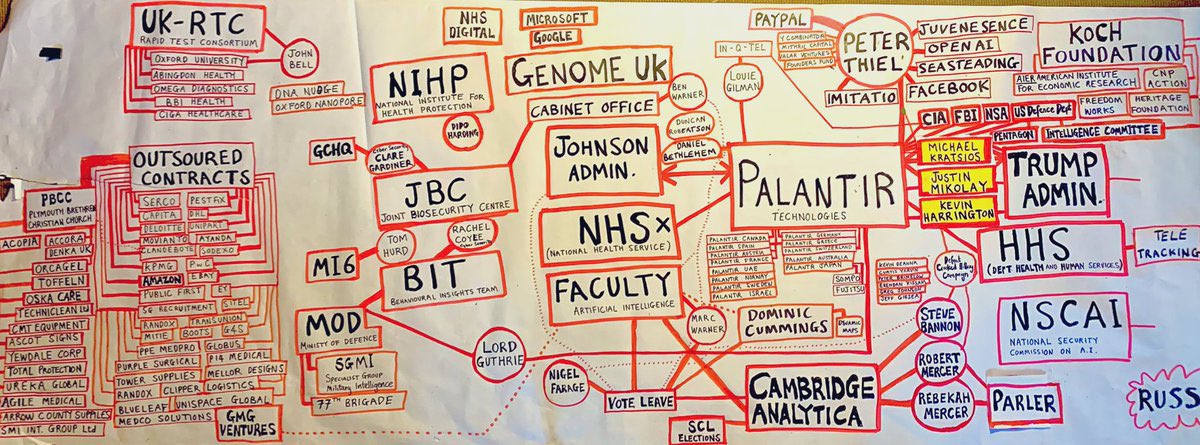 UK-RTC
RAPID TEST CONSORTIUM
JOHN
BELL
OXFORD UNIVERSITY
ABINGDON HEALTH
OMEGA DIAGNOSTICS
BBI HEALTH
CIGA HEALTHCARE
DNA NUDGE
OXFORD NANOPORE
NHS
DIGITAL
MICROSOFT
GOOGLE
NIHP
NATIONAL INSTITUTE FOR
HEALTH PROTECTION
DIDO
HARDING
GENOME UK
CABINET OFFICE
BEN
WARNER
DUNCAN
ROBERTSON
DANIEL
BETHLEHEM
JOHNSON
ADMIN.
GCHQ
Cyber Security
CLARE
GARDINER
JBC
JOINT BIOSECURITY CENTRE
IN-Q-TEL
LOUIE
GILMAN
PAYPAL
Y COMBINATOR
MITHRIL CAPITAL
VALAR VENTURES
FOUNDERS FUND
PETER
THIEL
IMITATIO
JUVENESENCE
OPEN AI
SEASTEADING
FACEBOOK
KOCH
FOUNDATION
AIER AMERICAN INSTITUTE
FOR ECONOMIC RESEARCH
CNP
ACTION
FREEDOM
WORKS
HERITAGE
FOUNDATION
CIA
FBI
NSA
US Defence Dept
PENTAGON
INTELLIGENCE COMMITTEE
MICHAEL
KRATSIOS
JUSTIN
MIKOLAY
KEVIN
HARRINGTON
TRUMP
ADMIN.
PALANTIR
TECHNOLOGIES
PALANTIR CANADA
PALANTIR SPAIN
PALANTIR AUSTRIA
PALANTIR FRANCE
PALANTIR UAE
PALANTIR NORWAY
PALANTIR SWEDEN
PALANTIR ISRAEL
PALANTIR GERMANY
PALANTIR GREECE
PALANTIR SWITZERLAND
PALANTIR AUSTRALIA
PALANTIR JAPAN
SOMPO
FUJITSU
OUTSOURED
CONTRACTS
SERCO
PESTFIX
CAPITA
DHL
DELOITTE
UNIPART
MOVIANTO
AYANDA
CLANDEBOYE
SODEXO
KPMG
PwC
EBAY
AMAZON
PUBLIC FIRST
EY
SG RECRUITMENT
SITEL
RANDOX
TRANSUNION
MITIE
BOOTS
G4S
PPE MEDPRO
GLOBUS
PURPLE SURGICAL
P14 MEDICAL
TOWER SUPPLIES
MELLOR DESIGNS
RANDOX
CLIPPER
LOGISTICS
BLUELEAF
UNISPACE GLOBAL
MEDCO SOLUTIONS
GMG
VENTURES
PBCC
PLYMOUTH BRETHREN
CHRISTIAN CHURCH
ACOPIA
ACCORA
DENKA UK
ORCAGEL
TOFFELN
OSKA CARE
TECHNICLEAN LTD
CMT EQUIPMENT
ASCOT SIGNS
YEWDALE CORP
TOTAL PROTECTION
EUREKA GLOBAL
AGILE MEDICAL
ARROW COUNTY SUPPLIES
SMI INT. GROUP Ltd
MI6
TOM
HURD
RACHEL
COYEE
Cyber Security
BIT
BEHAVIOURAL INSIGHTS TEAM
MOD
MINISTY OF DEFENCE
SGMI
SPECIALIST GROUP
Military Intelligence
77TH BRIGADE
LORD
GUTHRIE
NHSx
(NATIONAL HEALTH SERVICE)
FACULTY
ARTIFICIAL INTELLIGENCE
MARC
WARNER
DOMINIC
CUMMINGS
DYNAMIC
MAPS
NIGEL
FARAGE
VOTE LEAVE
SCL
ELECTIONS
CAMBRIDGE
ANALYTICA
KEVIN DEANNA
CURTIS YARVIN
PETER BRIMELOW
GREG JOHNSON
JEFF GIESEA
Defeat
Crooked Hillary
Campaign
STEVE
BANNON
ROBERT
MERCER
REBEKAH
MERCER
PARLER
HHS
(DEPT. HEALTH AND HUMAN SERVICES)
TELE
TRACKING
NSCAI
NATIONAL SECURITY
COMMISSION ON A.I.
RUSS